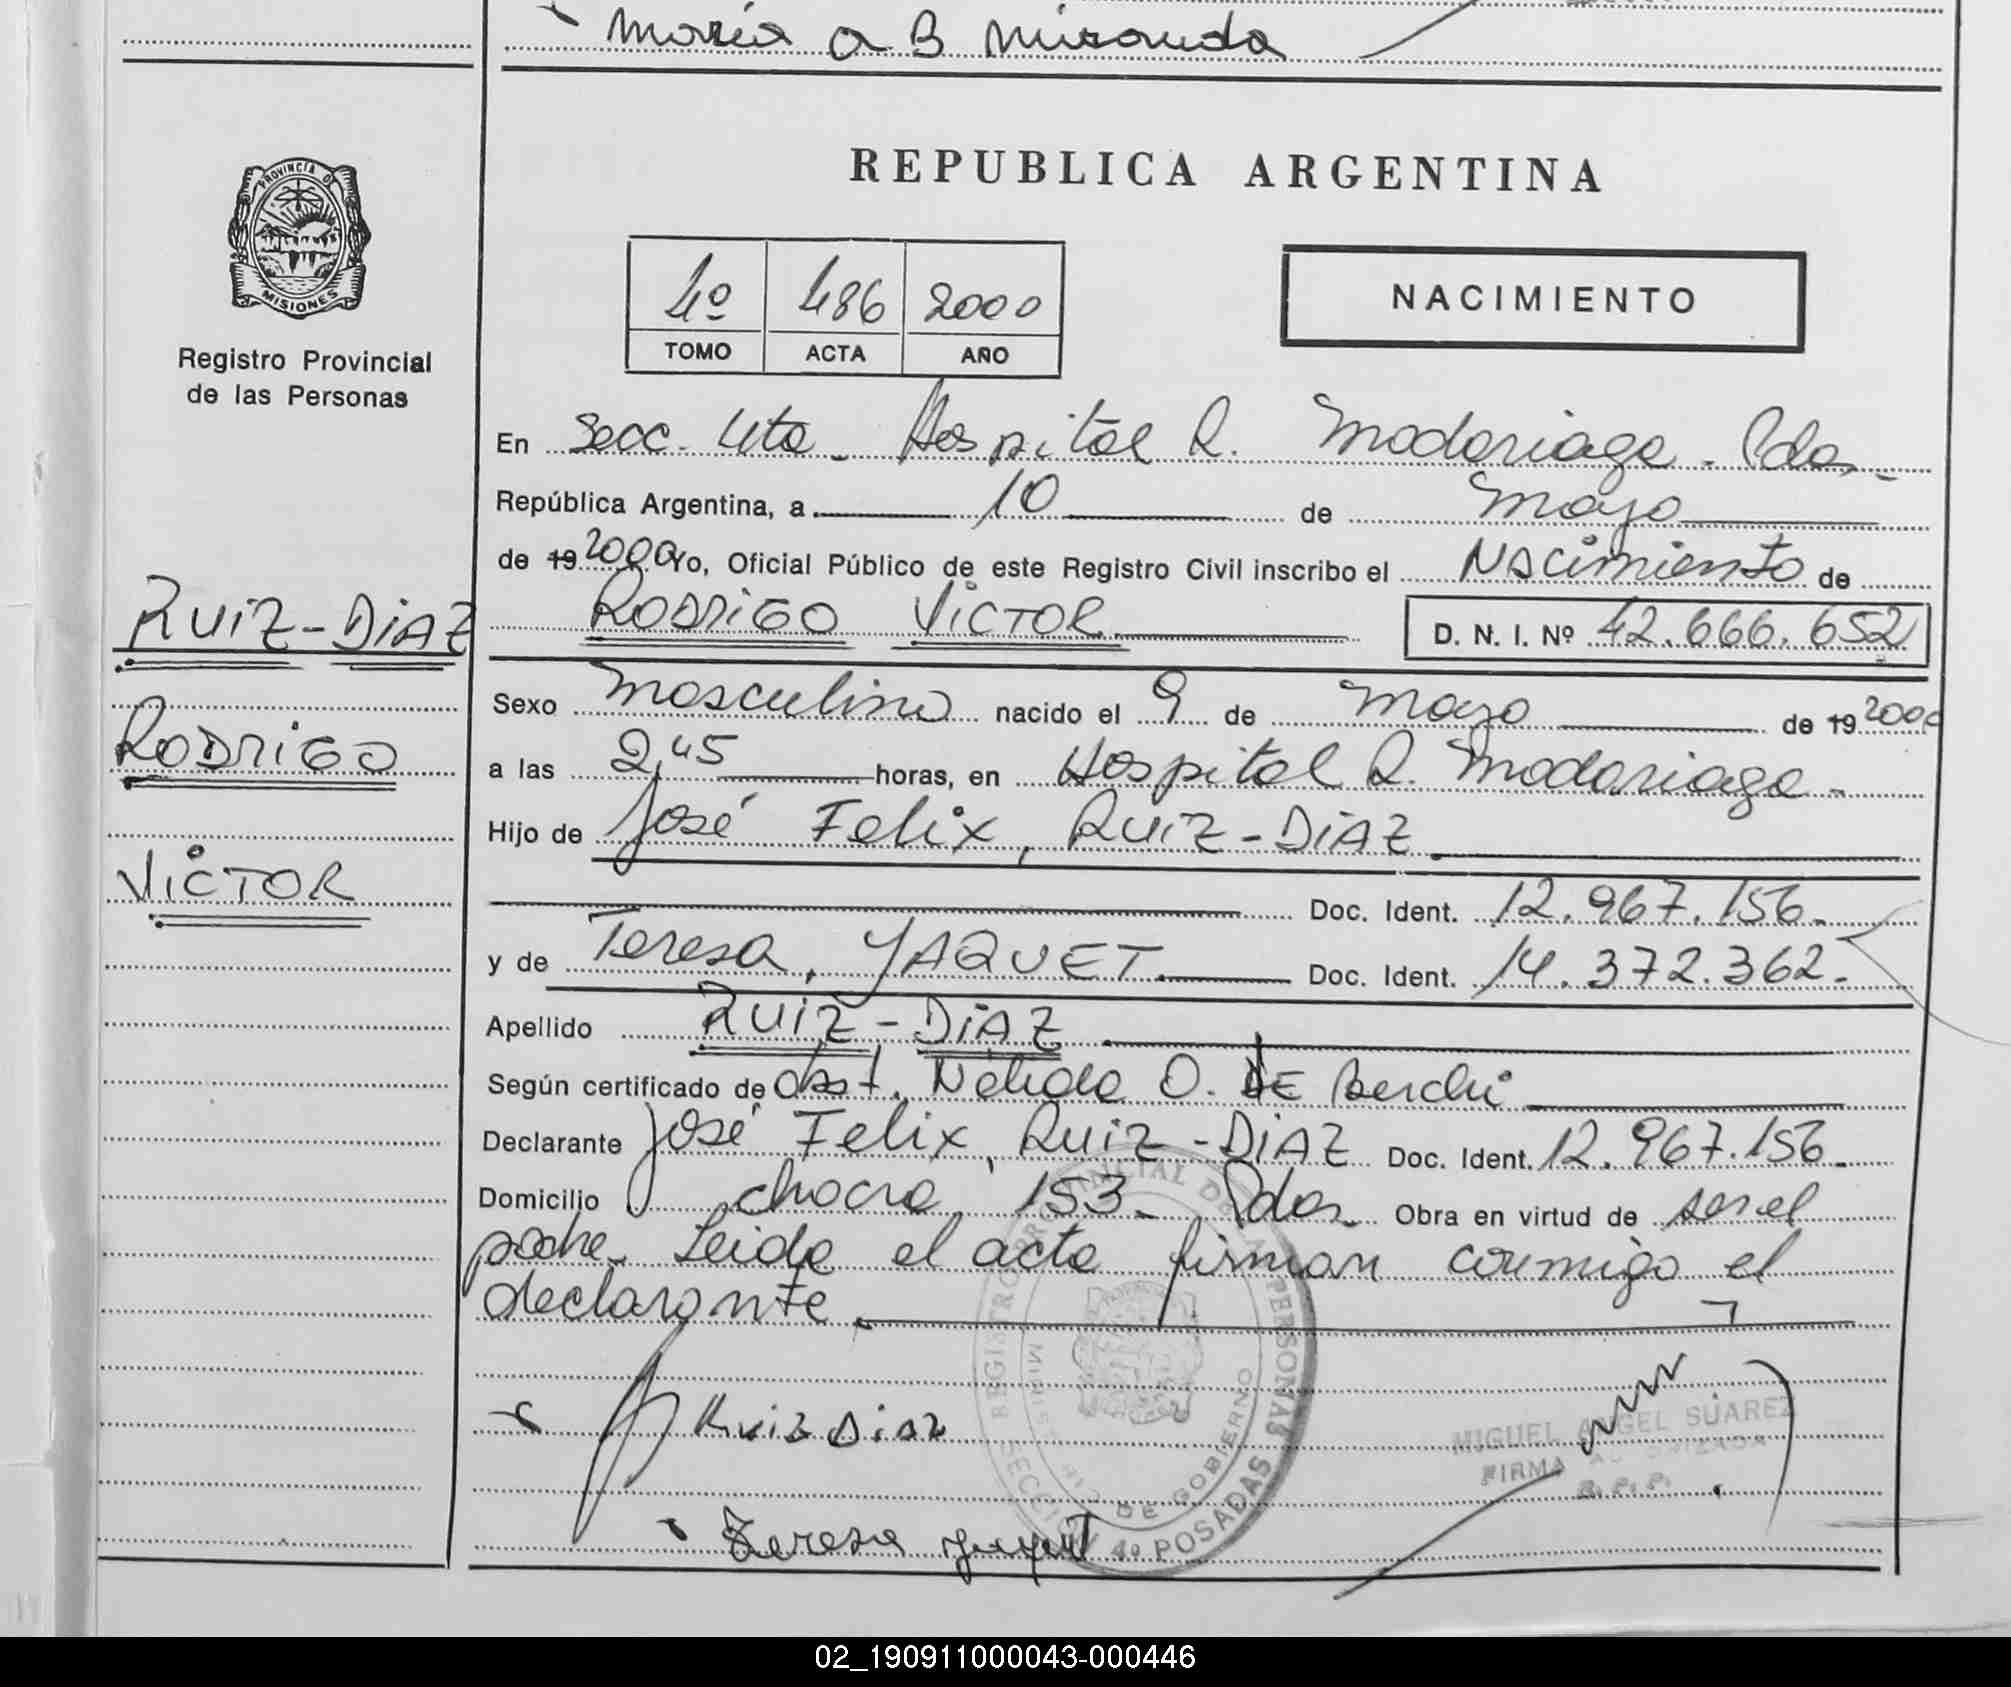 María a B Miranda
PROVINCIA DE
MISIONES
Registro Provincial
de las Personas
RUIZ-DIAZ
RODRIGO
VICTOR
REPUBLICA ARGENTINA
4º 486 2000
TOMO ACTA AÑO
NACIMIENTO
En Secc. 4ta - Hospital R. Madariaga - Pdas -
República Argentina, a 10 de Mayo
de 19 2000 Yo, Oficial Público de este Registro Civil inscribo el Nacimiento de
RODRIGO VICTOR D. N. I. Nº 42.666.652
Sexo Masculino nacido el 9 de Mayo de 19 2000
a las 2,45 horas, en Hospital R. Madariaga -
Hijo de José Felix, RUIZ-DIAZ
Doc. Ident. 12.967.156-
y de Teresa, YAQUET Doc. Ident. 14.372.362-
Apellido RUIZ-DIAZ
Según certificado de obst. Nelida O. DE Berchi
Declarante José Felix, RUIZ-DIAZ Doc. Ident. 12.967.156-
Domicilio chacra 153- Pdas- Obra en virtud de ser el
padre- Leida el acta firman conmigo el
declarante
Ruiz Diaz
REGISTRO PROVINCIAL DE PERSONAS
MINISTERIO DE GOBIERNO
SECCION 4º POSADAS
MIGUEL ANGEL SUAREZ
FIRMA AUTORIZADA
R.P.P.
Teresa
02_190911000043-000446